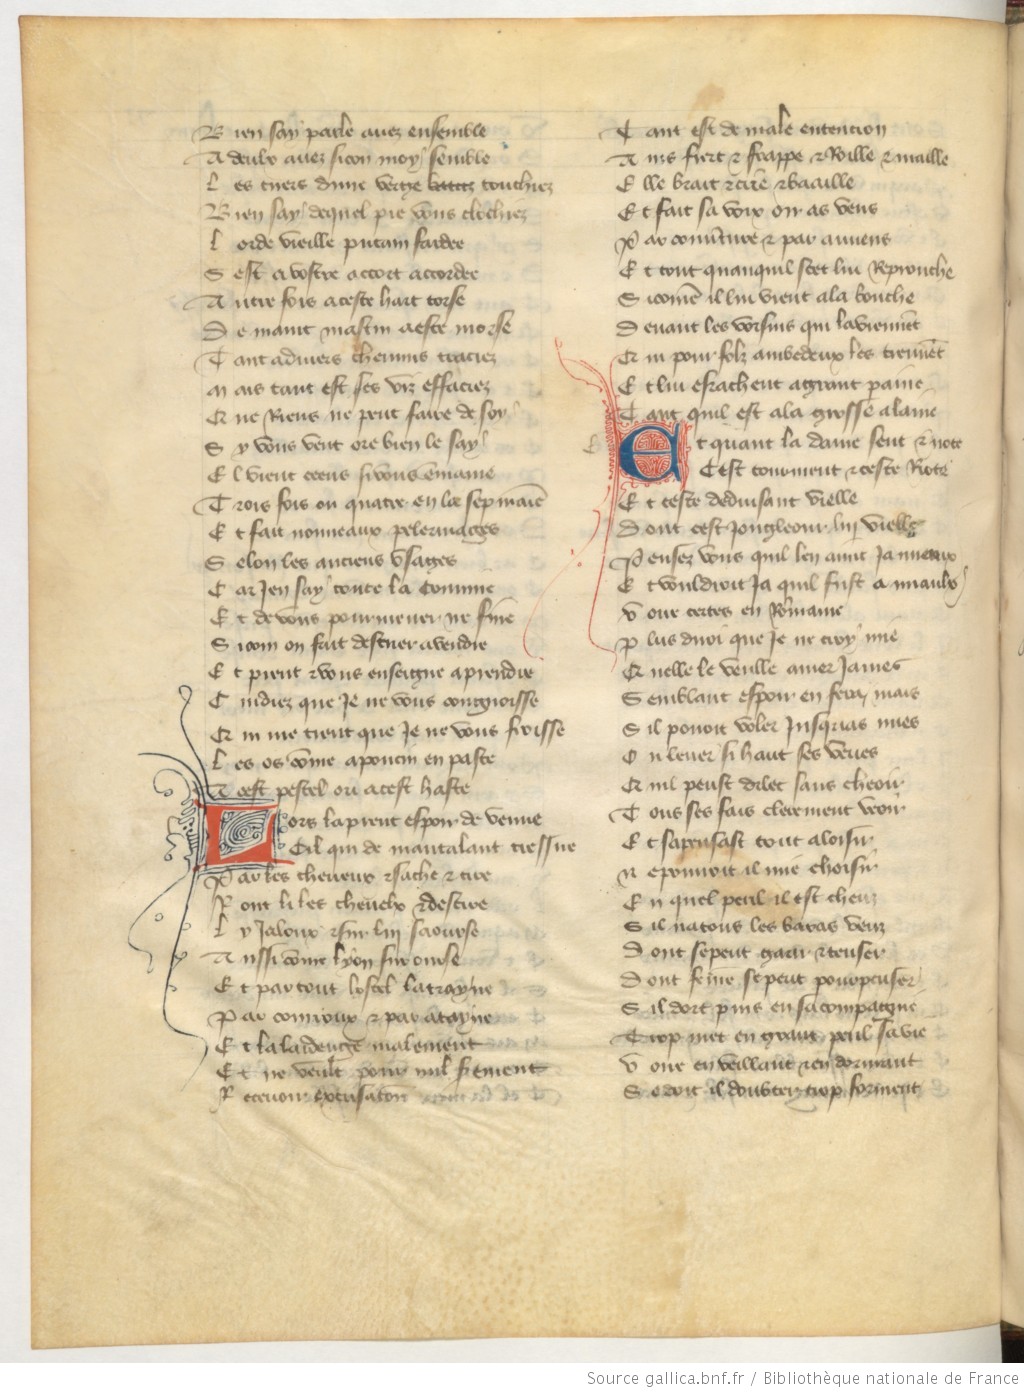 Bien say parle auez ensemble
A deulx auez si con moy semble
Les tuers dune verge touchiez
Bien say dequel pie vous clochiez
Lorde vieille putain fardee
S est a vostre accort accordee
Autre fois aceste hart torse
De maint mastin aeste morse
Tant a diuers chemins traciez
Mais tant est ses viz effaciez
Que Riens ne peut faire de soy
Sy vous vent ore bien le say
El vient ceens si vous emmaine
Trois fois ou quatre en la sepmaie
Et fait nouueaux pelerinages
Selon les anciens vsages
Car Jen say toute la Comme
Et de vous pourmener ne fine
Si com on fait destrier a vendre
Et prent et vous enseigne aprendre
Cuidiez que Je ne vous congnoisse
Qui me tient que Je ne vous froisse
Les os come a poucin en paste
A cest pestel ou a cest haste
Lors la prent espoir de venue
Cil qui de mautalant tressue
Par les cheueux & sache & tire
Ront li les cheuelx & descire
Ly Jaloux & sur luy saourse
Aussi come lyon sur ourse
Et par tout lostel la trayne
Par corroux & par atayne
Et la laidenge malement
Et ne veult pour nul serement
Receuoir excusaton
Tant est de male entencion
Ains fiert & frappe & Roille & maille
Elle brait & crie & baaille
Et fait sa voix on as vens
Par & par auuens
Et tout quanquil scet lui Reprouche
Si come il lui vient ala bouche
Deuant les voisins qui la viennet
Qui pour folz ambedeux les tiennet
Et lui esrachent a grant paine
Tant quil est ala grosse alaine
Et quant la dame sent & note
Cest tourment & ceste Rote
Et ceste deduisant vielle
Dont cest Jongleour luy vielle
Pensez vous quil len aint Ja mieux
Et vouldroit Ja quil fust a miaulx
Voire certes en Romaine
Plus diroi que Je ne croy mie
Quelle le veulle amer James
Semblant espoir en fera mais
Sil pouoit voler Jusquas nues
On leuer si haut ses veues
Quil peust dilec sans cheoir
Tous ses fais clerement veoir
Et sapensast tout a loisir
N epourroit il mie choisir
En quel peril il est cheuz
Sil na tous les baras veuz
Dont se peut garir & tenser
Dont feme se peut pourpenser
Sil dort puis en sa compaigne
Trop met en grant peril sa vie
Voire en veillant & en dormant
Se doit il doubter trop forment